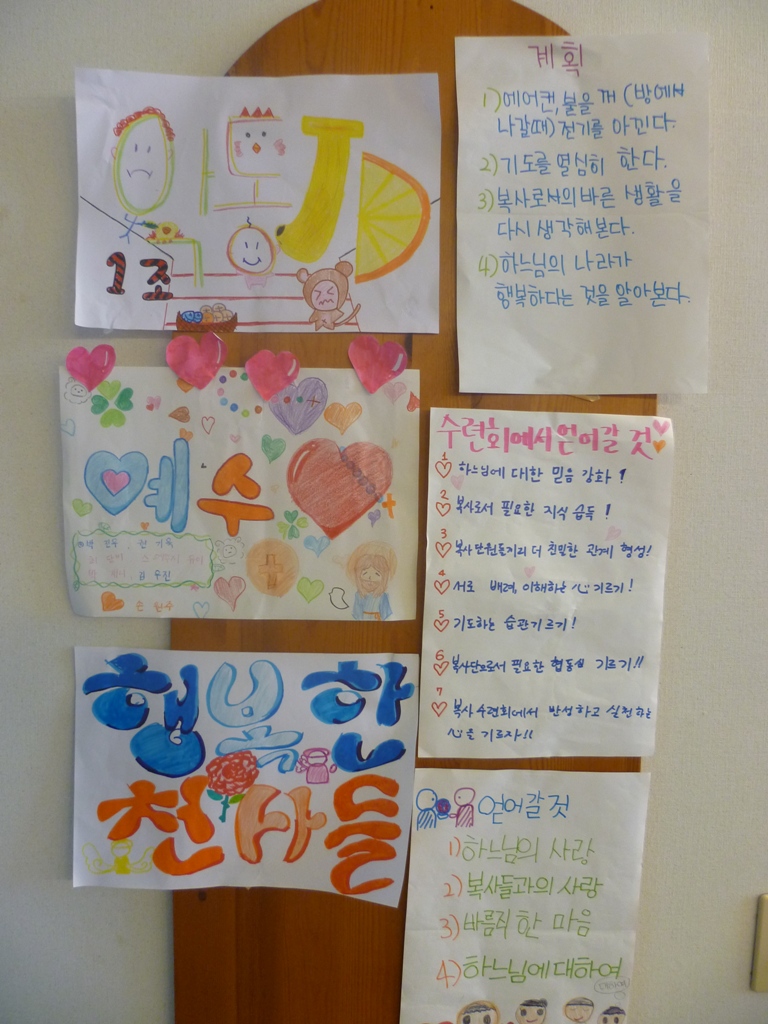 1조
계획
1) 에어컨, 불을 꺼 (방에서
나갈때) 전기를 아낀다.
2) 기도를 열심히 한다.
3) 복사로서의 바른 생활을
다시 생각해본다.
4) 하느님의 나라가
행복하다는 것을 알아본다.
예수
손 현수
수련회에서 얻어갈 것
1 하느님에 대한 믿음 강화!
2 복사로서 필요한 지식 습득!
3 복사단원들끼리 더 친밀한 관계 형성!
4 서로 배려, 이해하는 心 기르기!
5 기도하는 습관기르기!
6 복사단으로서 필요한 협동심 기르기!!
7 복사 수련회에서 반성하고 실천하는
心을 기르자!!
행복한
천사들
얻어갈것
1) 하느님의 사랑
2) 복사들과의 사랑
3) 바름직한 마음
4) 하느님에 대하여